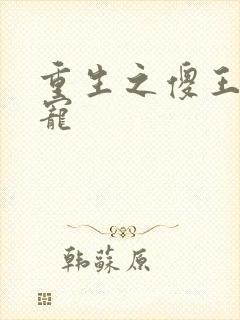 重生之傻王
寵
韩蘇原